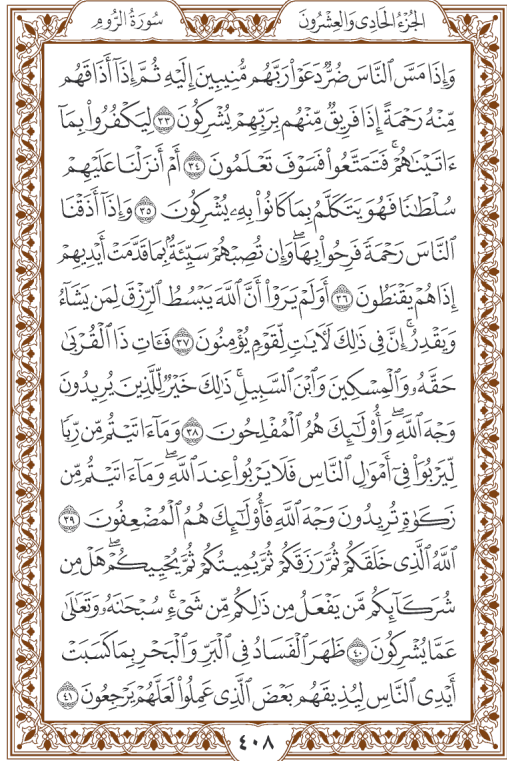 الجُزْءُ الحَادِى وَالعِشْرُونَ
سُورَةُ الرُّومِ
وَإِذَا مَسَّ ٱلنَّاسَ ضُرٌّ دَعَوْا۟ رَبَّهُم مُّنِيبِينَ إِلَيْهِ ثُمَّ إِذَآ أَذَاقَهُم
مِّنْهُ رَحْمَةً إِذَا فَرِيقٌ مِّنْهُم بِرَبِّهِمْ يُشْرِكُونَ ٣٣ لِيَكْفُرُوا۟ بِمَآ
ءَاتَيْنَـٰهُمْ ۚ فَتَمَتَّعُوا۟ فَسَوْفَ تَعْلَمُونَ ٣٤ أَمْ أَنزَلْنَا عَلَيْهِمْ
سُلْطَـٰنًا فَهُوَ يَتَكَلَّمُ بِمَا كَانُوا۟ بِهِۦ يُشْرِكُونَ ٣٥ وَإِذَآ أَذَقْنَا
ٱلنَّاسَ رَحْمَةً فَرِحُوا۟ بِهَا ۖ وَإِن تُصِبْهُمْ سَيِّئَةٌۢ بِمَا قَدَّمَتْ أَيْدِيهِمْ
إِذَا هُمْ يَقْنَطُونَ ٣٦ أَوَلَمْ يَرَوْا۟ أَنَّ ٱللَّهَ يَبْسُطُ ٱلرِّزْقَ لِمَن يَشَآءُ
وَيَقْدِرُ ۚ إِنَّ فِى ذَٰلِكَ لَـَٔايَـٰتٍ لِّقَوْمٍ يُؤْمِنُونَ ٣٧ فَـَٔاتِ ذَا ٱلْقُرْبَىٰ
حَقَّهُۥ وَٱلْمِسْكِينَ وَٱبْنَ ٱلسَّبِيلِ ۚ ذَٰلِكَ خَيْرٌ لِّلَّذِينَ يُرِيدُونَ
وَجْهَ ٱللَّهِ ۖ وَأُو۟لَـٰٓئِكَ هُمُ ٱلْمُفْلِحُونَ ٣٨ وَمَآ ءَاتَيْتُم مِّن رِّبًا
لِّيَرْبُوَا۟ فِىٓ أَمْوَٰلِ ٱلنَّاسِ فَلَا يَرْبُوا۟ عِندَ ٱللَّهِ ۖ وَمَآ ءَاتَيْتُم مِّن
زَكَوٰةٍ تُرِيدُونَ وَجْهَ ٱللَّهِ فَأُو۟لَـٰٓئِكَ هُمُ ٱلْمُضْعِفُونَ ٣٩
ٱللَّهُ ٱلَّذِى خَلَقَكُمْ ثُمَّ رَزَقَكُمْ ثُمَّ يُمِيتُكُمْ ثُمَّ يُحْيِيكُمْ ۖ هَلْ مِن
شُرَكَآئِكُم مَّن يَفْعَلُ مِن ذَٰلِكُم مِّن شَىْءٍ ۚ سُبْحَـٰنَهُۥ وَتَعَـٰلَىٰ
عَمَّا يُشْرِكُونَ ٤٠ ظَهَرَ ٱلْفَسَادُ فِى ٱلْبَرِّ وَٱلْبَحْرِ بِمَا كَسَبَتْ
أَيْدِى ٱلنَّاسِ لِيُذِيقَهُم بَعْضَ ٱلَّذِى عَمِلُوا۟ لَعَلَّهُمْ يَرْجِعُونَ ٤١
٤٠٨